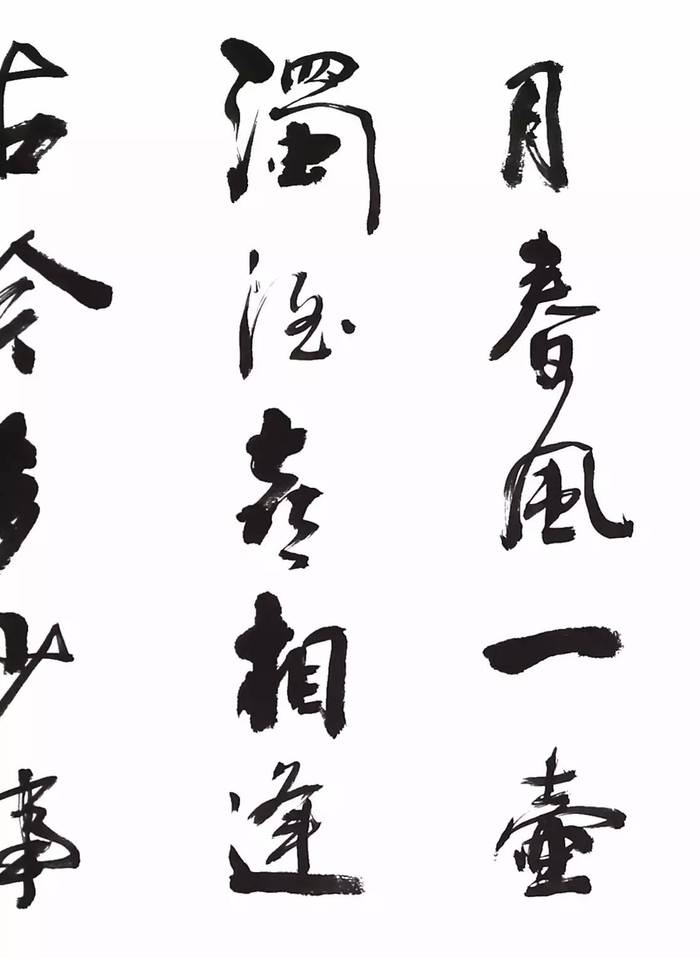 月春風一壺
濁酒喜相逢
古今多少事